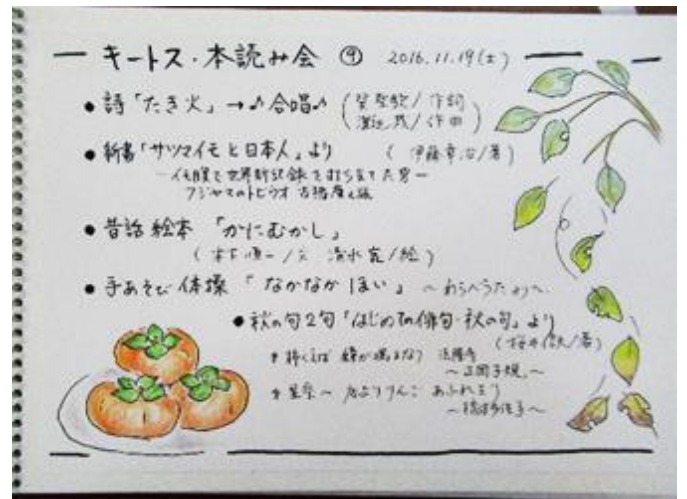 キートス・本読み会 ⑨ 2016.11.19(土)
● 詩「たき火」→♪合唱♪ (巽聖歌/作詞
渡辺茂/作曲)
● 新書「サツマイモと日本人」より (伊藤章治/著)
―イモ腹で世界新記録を打ち立てた男―
フジヤマのトビウオ 古橋廣之進
● 昔話絵本 「かにむかし」
(木下順二/文 清水崑/絵)
● 手あそび体操 「なかなかほい」 ～わらべうたより～
● 秋の句2句「はじめての俳句・秋の句」より
(桜井信夫/著)
柿くえば 鐘が鳴るなり 法隆寺
～正岡子規～
星空へ 店よりりんご あふれをり
～橋本多佳子～